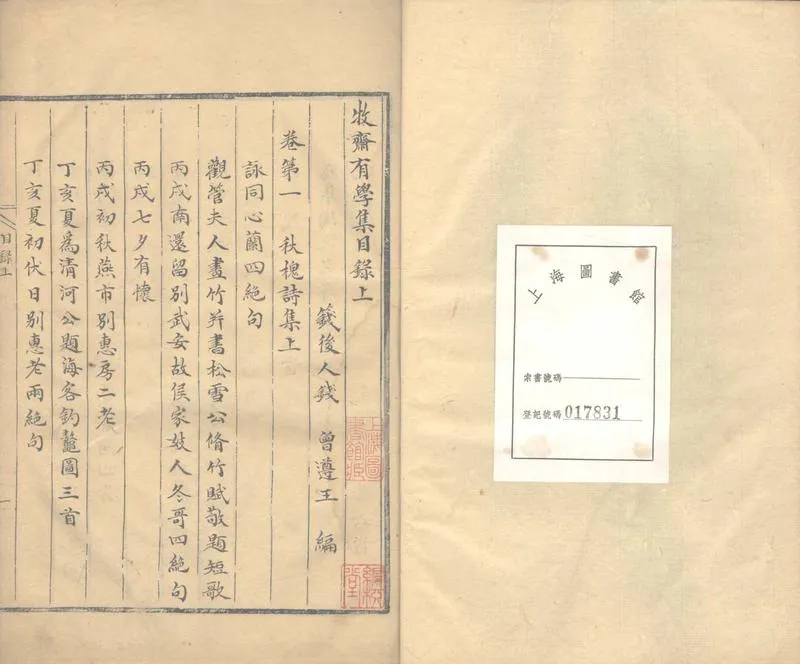 上海圖書館
索書號碼
登記號碼 017831
牧齋有學集目錄上
籛後人錢 曾遵王 編
卷第一 秋槐詩集上
詠同心蘭四絶句
觀管夫人畫竹并書松雪公脩竹賦敬題短歌
丙戌南還留别武安故侯家妓人冬哥四絶句
丙戌七夕有懷
丙戌初秋燕市别惠房二老
丁亥夏爲清河公題海客釣鼇圖三首
丁亥夏初伏日别惠老兩絶句
目錄上
上海圖書館藏